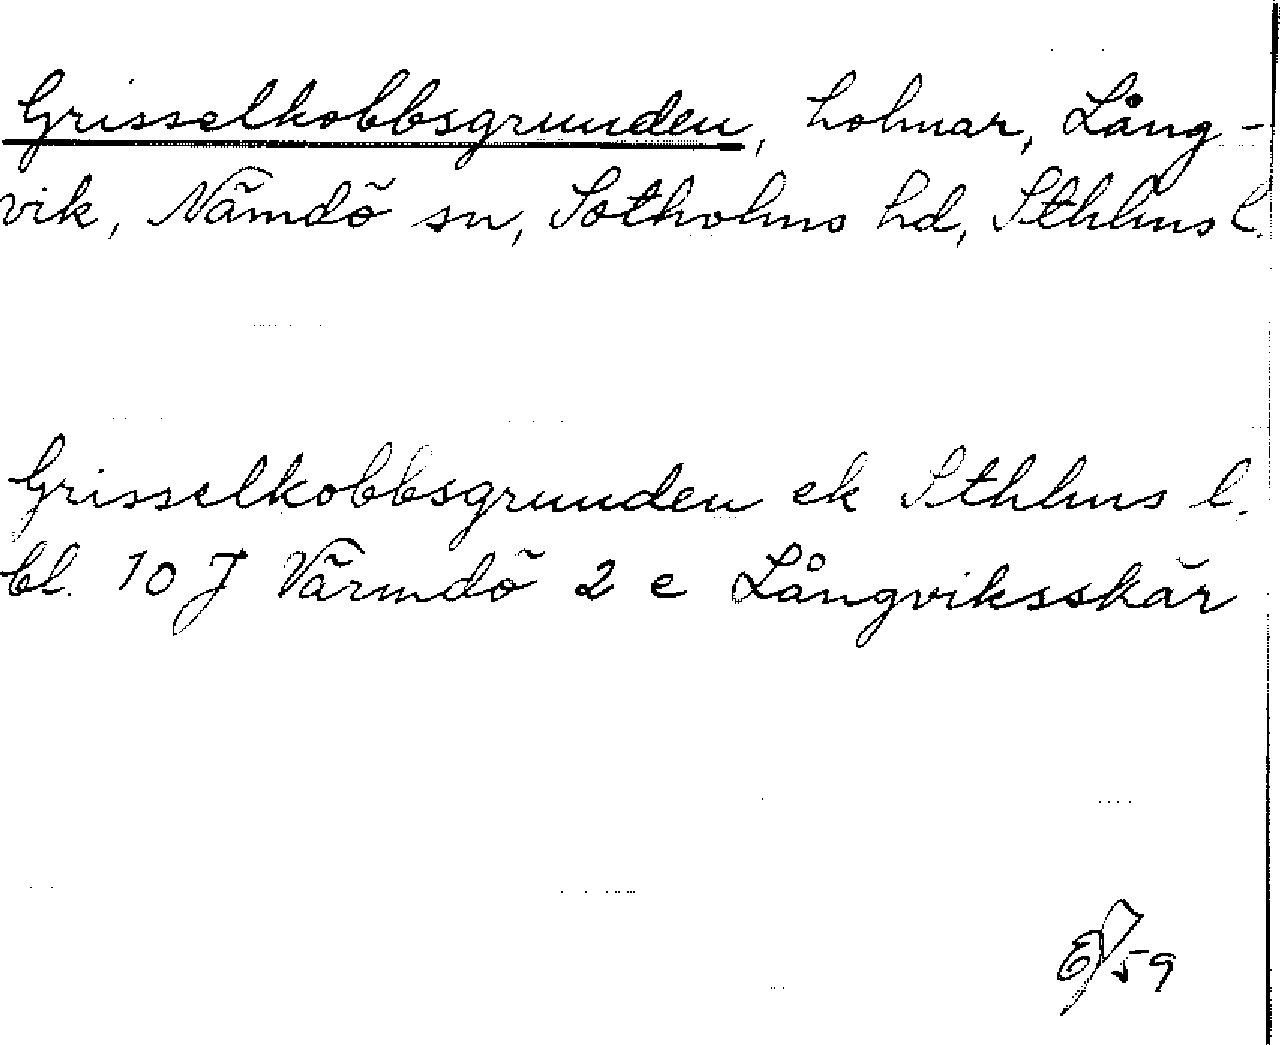 Grisselkobbsgrunden, holmar, Lång-
vik, Nämdö sn, Sotholms hd, Sthlms l.
Grisselkobbsgrunden ek Sthlms l.
bl. 10 J Värmdö 2 e Långviksskär
59